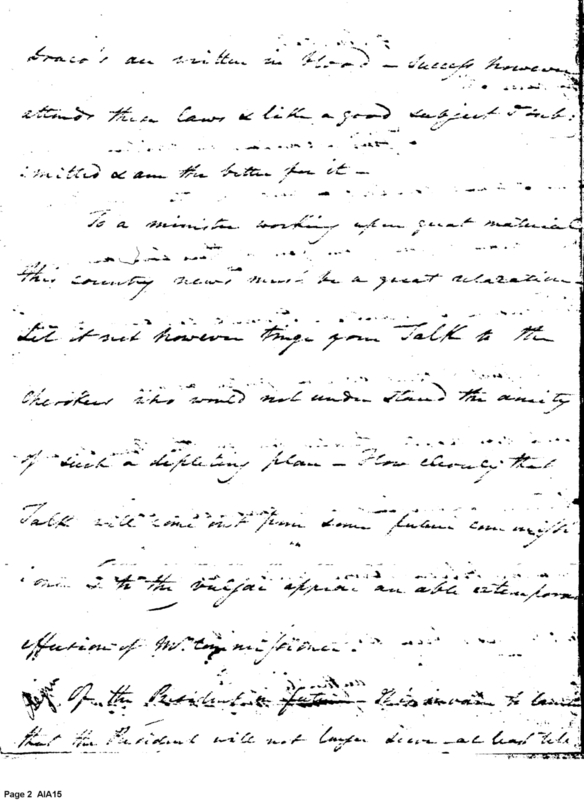 Draco's are written in blood - Success however
attends these laws & like a good subject I sub:
:mitted & am the better for it -
To a minister working upon great materials
this country news must be a great relaxation -
Let it not however tinge your Talk to the
Cherokees who would not understand the amity
of such a depleting plan - How cleverly that
Talk will come out from some future commissi
:oner & to the vulgar appear an able extemporary
effusion of Mr. Commissioner.
Of the President in - This in vain to
that the President will not longer serve - at least
Page 2 AIA15